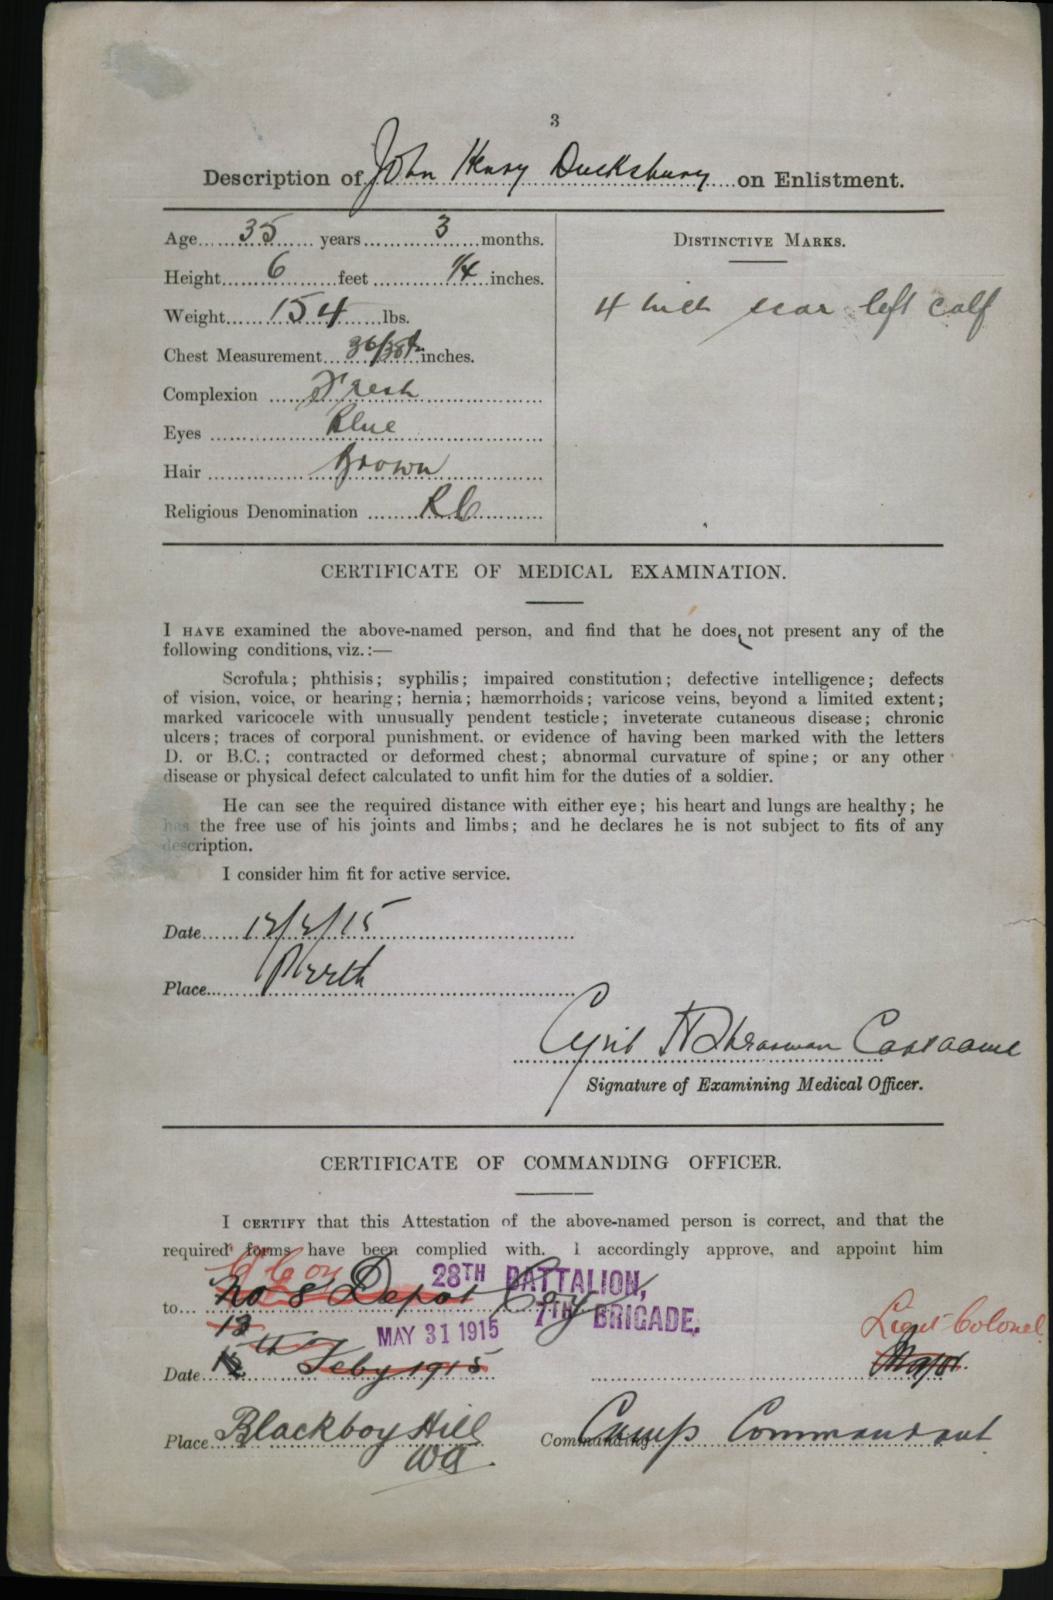 3
Description of John Henry Ducksbury on Enlistment.
Age 35 years 3 months.
Height 6 feet 1/4 inches.
Weight 154 lbs.
Chest Measurement 36/38½ inches.
Complexion Fresh
Eyes Blue
Hair Brown
Religious Denomination RC
DISTINCTIVE MARKS.
4 inch scar left calf
CERTIFICATE OF MEDICAL EXAMINATION.
I HAVE examined the above-named person, and find that he does not present any of the
following conditions, viz.:—
Scrofula; phthisis; syphilis; impaired constitution; defective intelligence; defects
of vision, voice, or hearing; hernia; hæmorrhoids; varicose veins, beyond a limited extent;
marked varicocele with unusually pendent testicle; inveterate cutaneous disease; chronic
ulcers; traces of corporal punishment. or evidence of having been marked with the letters
D. or B.C.; contracted or deformed chest; abnormal curvature of spine; or any other
disease or physical defect calculated to unfit him for the duties of a soldier.
He can see the required distance with either eye; his heart and lungs are healthy; he
has the free use of his joints and limbs; and he declares he is not subject to fits of any
description.
I consider him fit for active service.
Date 12/2/15
Place Perth
Cyril
Signature of Examining Medical Officer.
CERTIFICATE OF COMMANDING OFFICER.
I CERTIFY that this Attestation of the above-named person is correct, and that the
required forms have been complied with. I accordingly approve, and appoint him
to No 8 Depot Coy
28TH BATTALION,
7TH BRIGADE.
13
MAY 31 1915
Lieut Colonel
Date th Feby 1915
Major
Place Blackboy Hill
WA
Commanding Camp Commandant